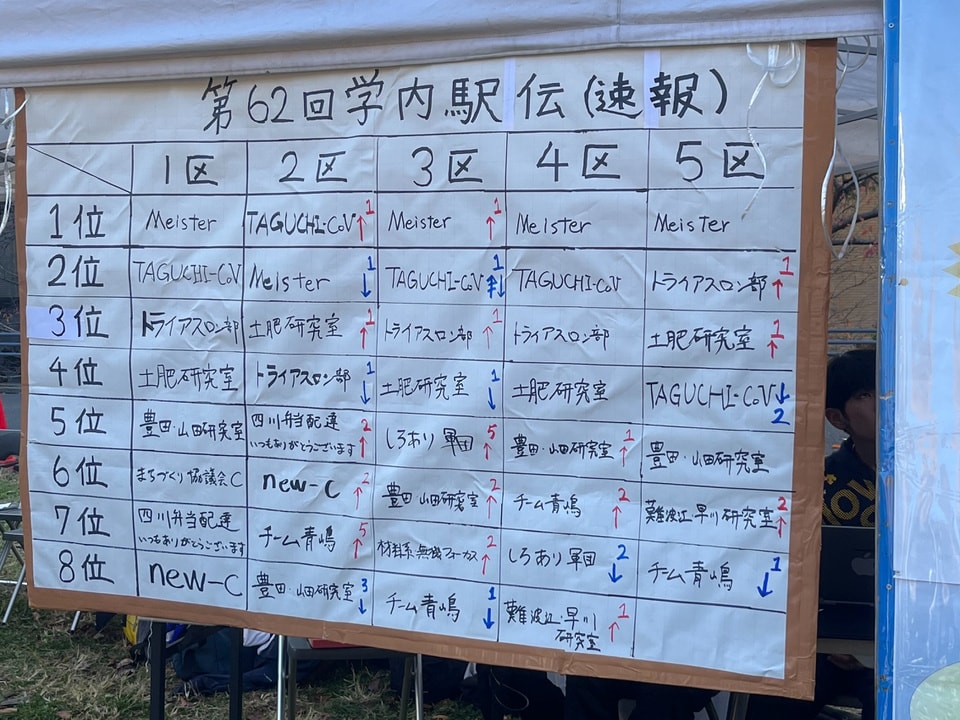 第62回学内駅伝(速報)
1区 2区 3区 4区 5区
1位 Meister TAGUCHI-CoV ↑1 Meister ↑1 Meister Meister
2位 TAGUCHI-CoV Meister ↓1 TAGUCHI-CoV ↓1 TAGUCHI-CoV トライアスロン部 ↑1
3位 トライアスロン部 土肥研究室 ↑1 トライアスロン部 ↑1 トライアスロン部 土肥研究室 ↑1
4位 土肥研究室 トライアスロン部 ↓1 土肥研究室 ↓1 土肥研究室 TAGUCHI-CoV ↓2
5位 豊田・山田研究室 四川弁当配達 いつもありがとうございます ↑2 しろあり軍団 ↑5 豊田・山田研究室 ↑1 豊田・山田研究室
6位 まちづくり協議会C new-c ↑2 豊田・山田研究室 ↑2 チーム青嶋 ↑2 難波江・早川研究室 ↑2
7位 四川弁当配達 いつもありがとうございます チーム青嶋 ↑5 材料系無機フォーカス ↑2 しろあり軍団 ↓2 チーム青嶋 ↓1
8位 new-c 豊田・山田研究室 ↓3 チーム青嶋 ↓1 難波江・早川研究室 ↑1